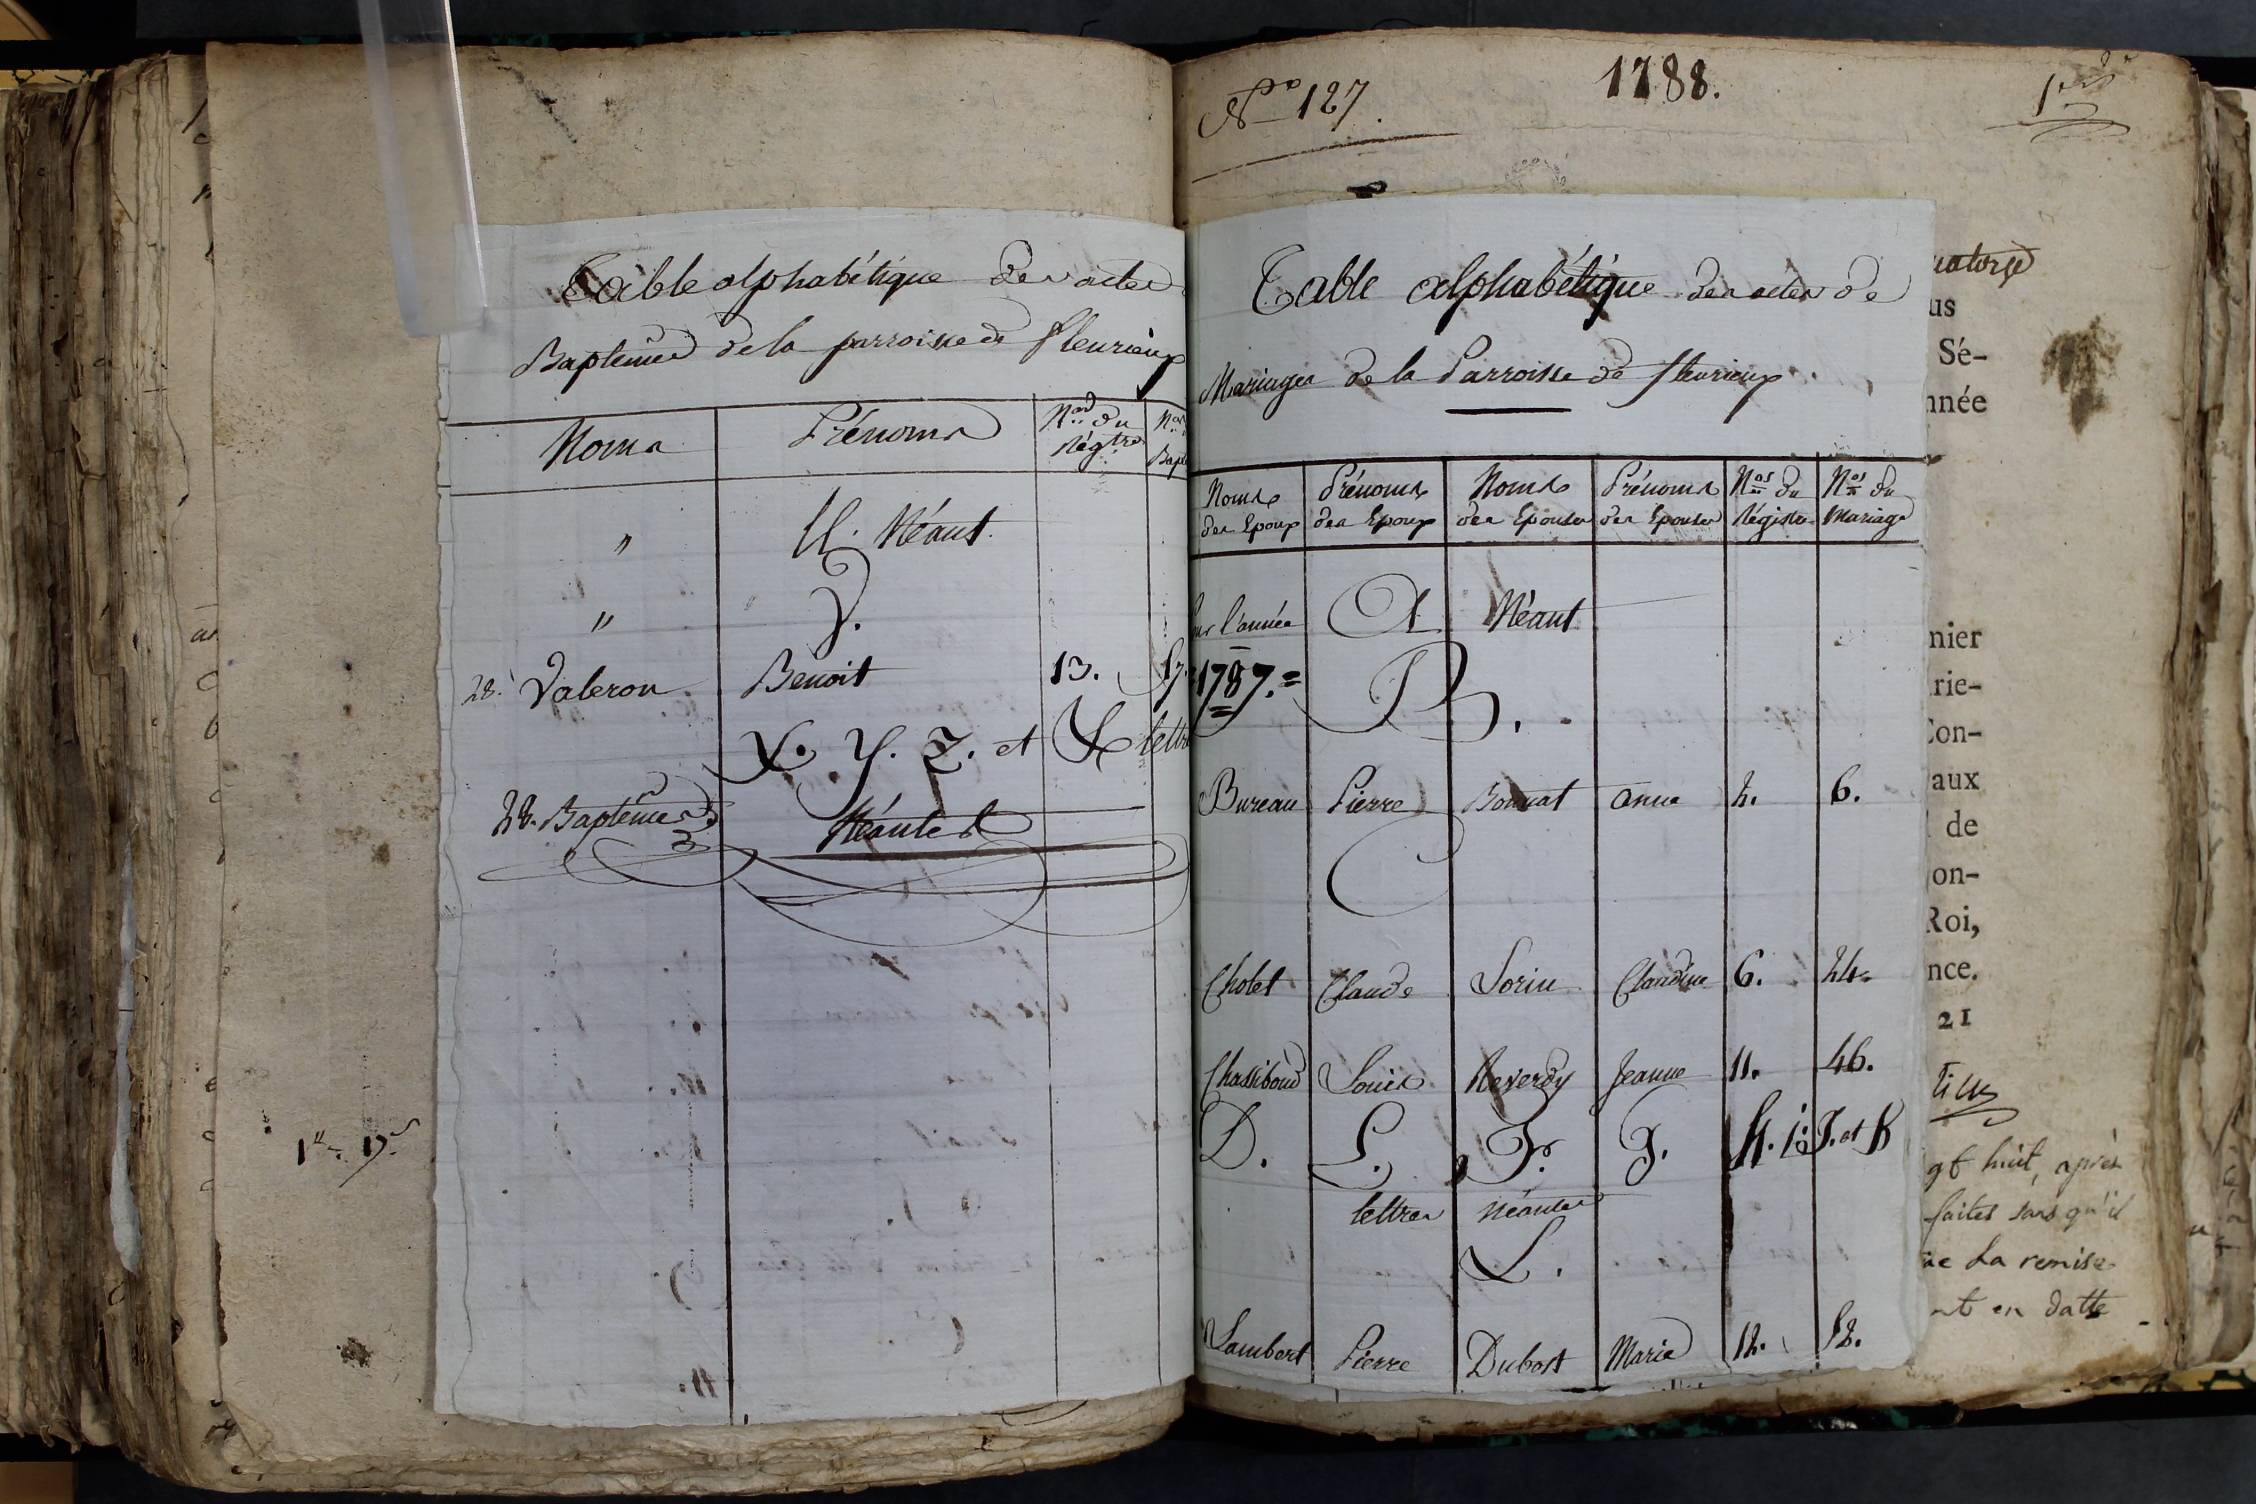 Table alphabétique des actes
Baptêmes de la parroisse de fleurieux
Noms Prénoms Nos. du Régtre Nos Bapt
" U. Néant.
" V.
28. Valeron Benoit 13. 57.
X. Y. Z. et & lettre
28. Baptêmes Néantes
1788.
No 127.
Table alphabétique des actes de
Mariages de la Parroisse de fleurieux
Noms des Epoux Prénoms des Epoux Noms des Epouses Prénoms des Epouses Nos du Régistre Nos du Mariage
pour l'année A Néant
1787.= B.
Bureau Pierre Bonnat anne 2. 6.
C
Cholet Claude Sorin Claudine 6. 24.
Chassiboud Louis Reverdy Jeanne 11. 46.
D. E. F. G. H. I. J. et K
lettres néantes
L.
Lambert Pierre Dubost Marie 12. 52.
uatorze
us
Sé-
nnée
nier
rie-
Con-
aux
de
on-
Roi,
nce.
21
gt huit, après
faites sans qu'il
La remise
nt en datte